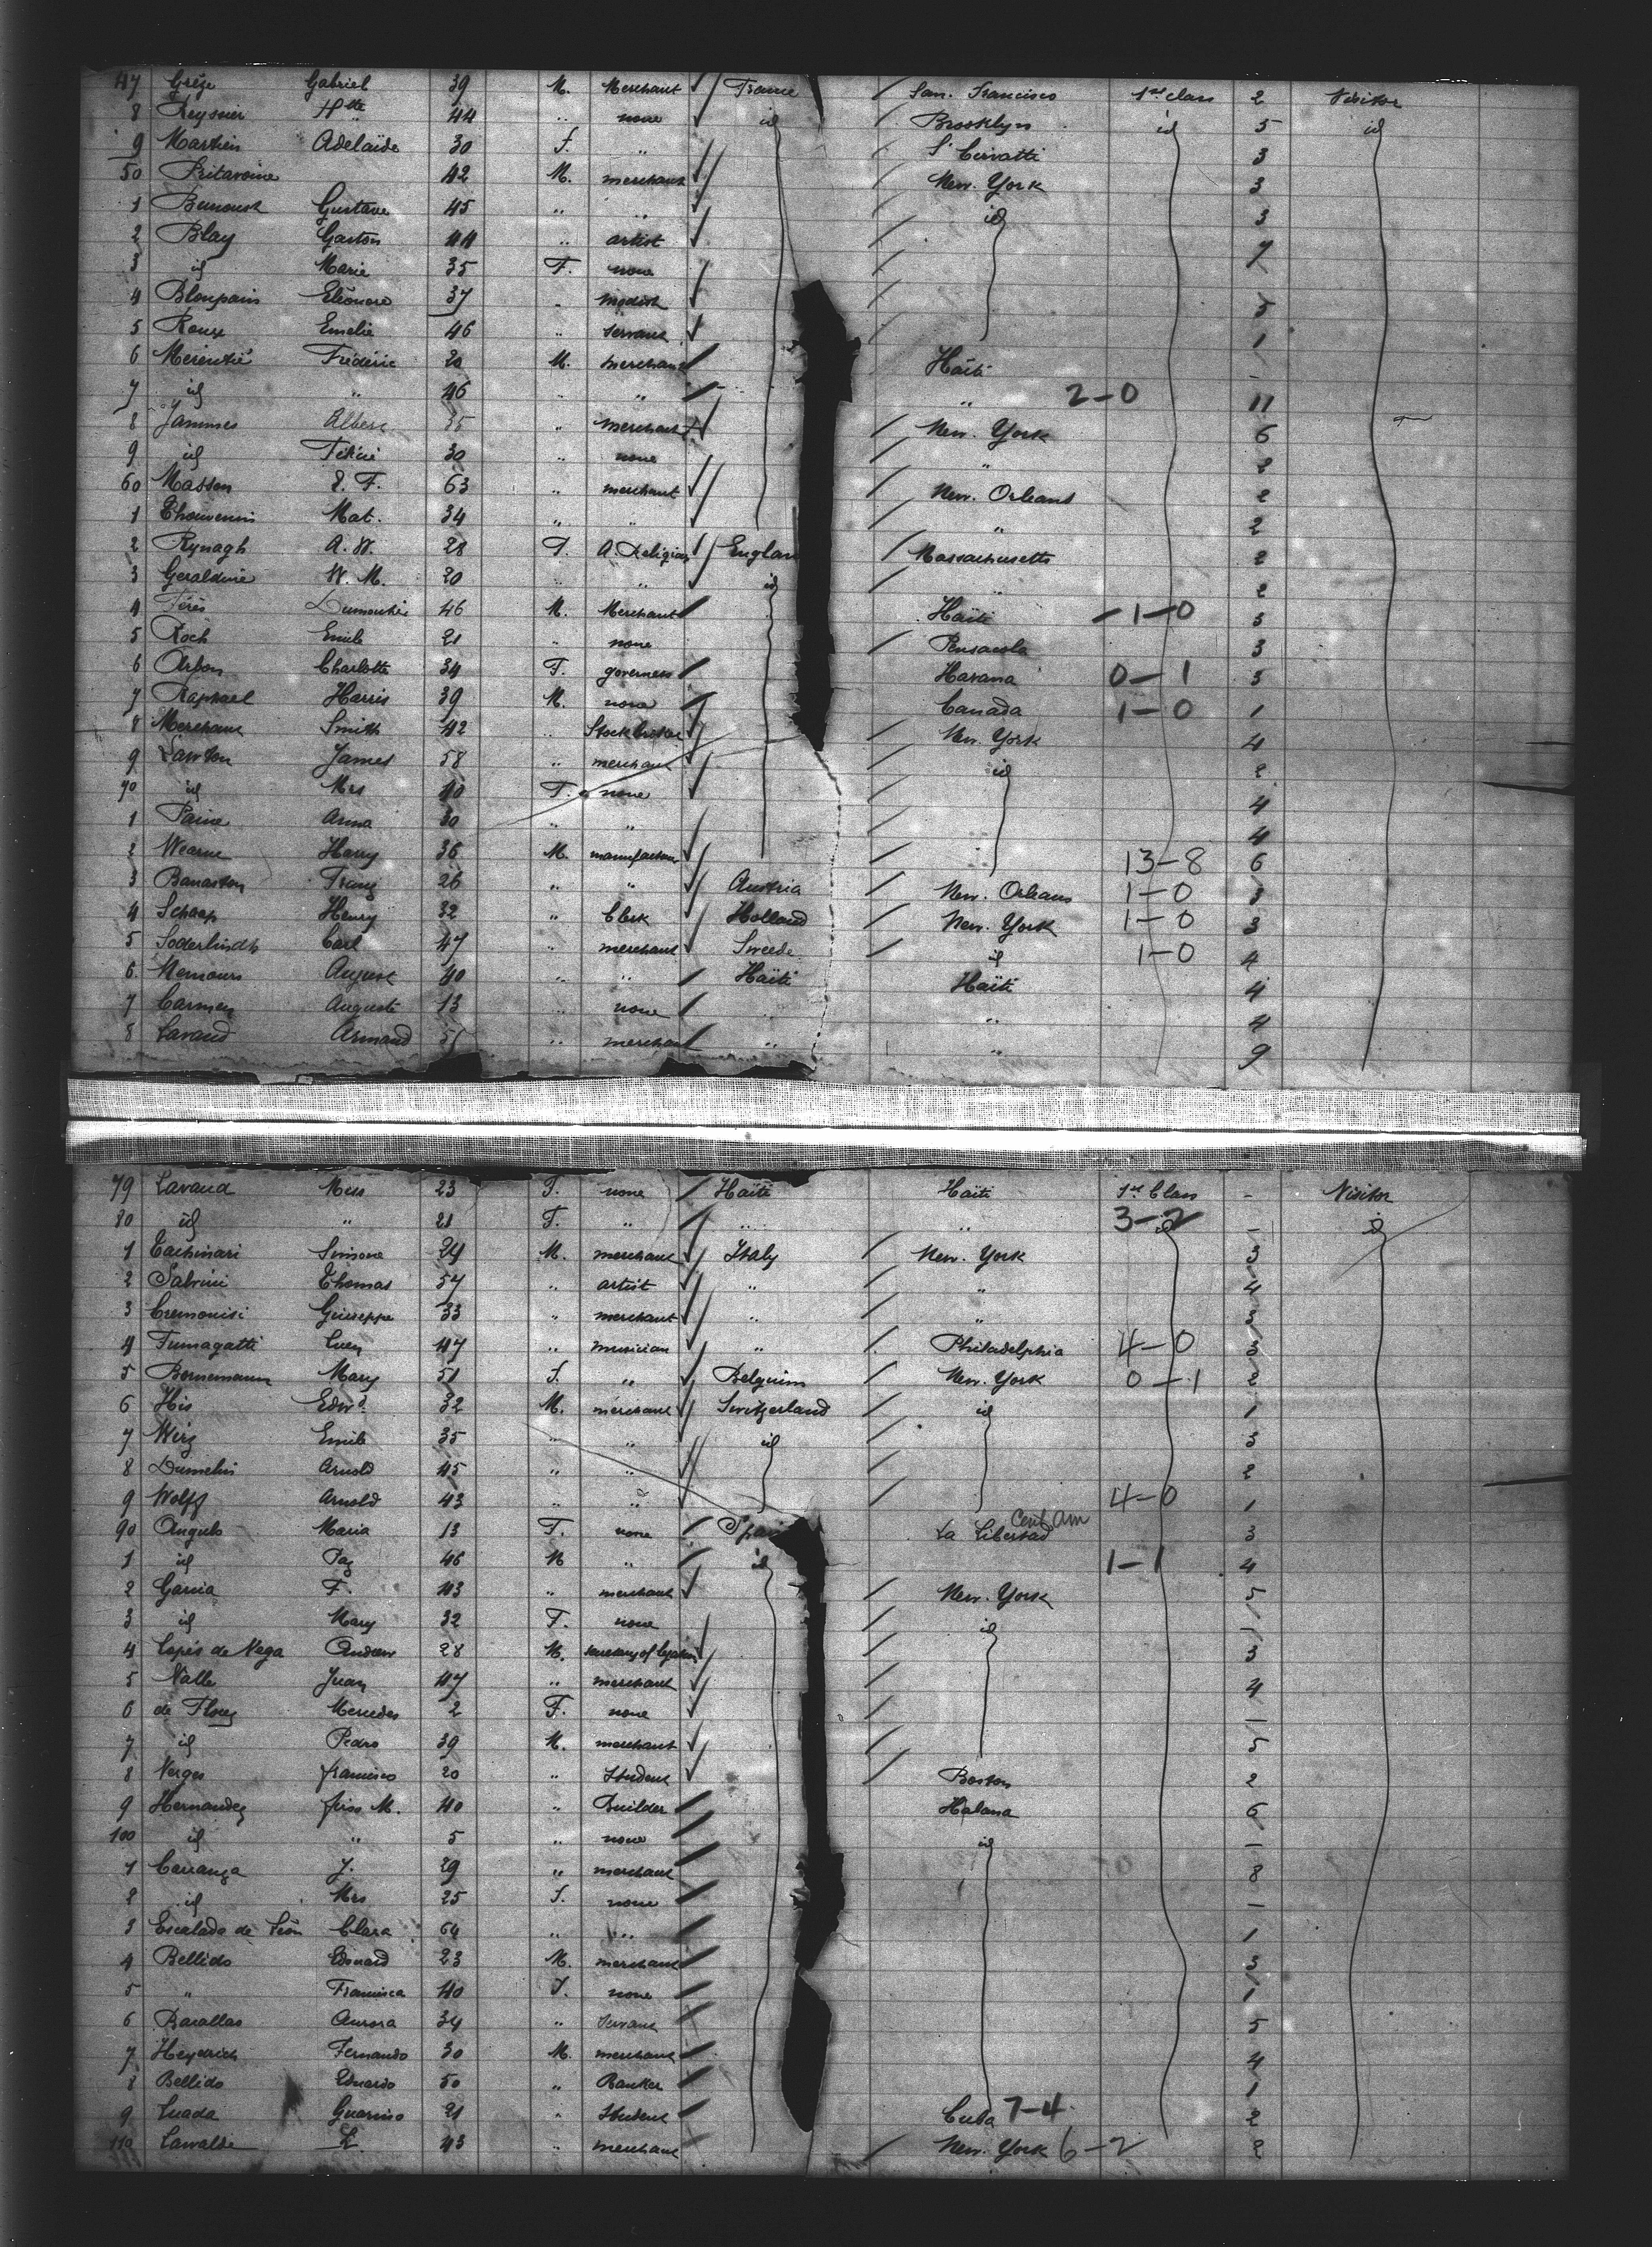 47 Grèze Gabriel 39 M. Merchant France San. Francisco 1st class 2 Visitor
8 Reynier Hte 44 " none id Brooklyn id 5 id
9 Martin Adelaïde 30 F. " 3
50 Pritavoine 42 M. merchant New. York 3
1 Gustave 45 " " id 3
2 Blay Gaston 44 " artist
3 id Marie 35 F. none
4 Bloupain Eléonore 37 " modist 5
5 Roux Emelie 46 " servant 1
6 Frédéric 20 M. merchant Haïti -
7 id " 46 " " " 2-0 11
8 Jammes Albert 35 " merchant New. York 6
9 id 30 " none " 2
60 Masson E. F. 63 " merchant New. Orleans 2
1 Thouvenin Mat. 34 " " " 2
2 Rynagh A. W. 28 F. A. Religious England Massachusetts 2
3 Geraldine W. M. 20 " " id " 2
4 46 M. Merchant Haïti 1-0 3
5 Roch Emile 21 " none Pensacola 3
6 Orbon Charlotte 34 F. governess Havana 0-1 5
7 Raphael Harris 39 M. none Canada 1-0 1
8 Smith 42 " Stockbroker New. York 4
9 Lawton James 58 " merchant id 2
70 id Mrs 40 F. none 4
1 Paine Anna 30 " " 4
2 Wearne Harry 36 M. manufacturer 13-8 6
3 Franz 26 " " Austria New. Orleans 1-0 3
4 Schaap Henry 32 " Clerk Holland New. York 1-0 3
5 Soderlindh Carl 47 " merchant Sweede id 1-0 4
6 Nemours August 40 " " Haïti Haïti 4
7 Carmen Auguste 13 " none " " 4
8 Lavaud Armand 51 " merchant " " 9
79 Lavaud Miss 23 F. none Haïti Haïti 1st Class - Visitor
80 id " 21 F. " " " 3-2 id - id
1 Simone 24 M. merchant Italy New. York 3
2 Sabrini Thomas 54 " artist " " 4
3 Cremonisi Giuseppe 33 " merchant " " 3
4 Fumagatti 47 " musician " Philadelphia 4-0 3
5 Bornemann Mary 51 F. " Belguim New. York 0-1 2
6 His Edwd 32 M. merchant Switzerland id 1
7 Wirz Emile 35 " " id 3
8 Dumelin Arnold 45 " " 2
9 Wolff Arnold 43 " " 4-0 1
90 Angulo Maria 13 F. none Spain La Libertad Cent Am 3
1 id Paz 46 M " id 1-1 4
2 Garcia F. 43 " merchant New. York 5
3 id Mary 32 F. none id 1
4 Lopès de Vega Andrew 28 M. secretary of legation 3
5 Valle Juan 47 " merchant 4
6 de Florez Mercedes 2 F. none 1
7 id Pedro 39 M. merchant 5
8 Verges francisco 20 " Student Boston 2
9 Hernandez M. 40 " Builder Habana 6
100 id " 5 " none id -
1 Carranza J. 29 " merchant 8
2 id Mrs 25 F. none -
3 Escalada de León Clara 64 " " 1
4 Bellido Edouard 23 M. merchant 3
5 " Francisca 40 F. none 1
6 Aurora 34 " Servant 5
7 Heydrich Fernando 30 M. merchant 4
8 Bellido Eduardo 50 " Banker 1
9 Luada Guarino 21 " Student Cuba 7-4 2
110 Lawalde E. 43 " merchant New. York 6-2 2